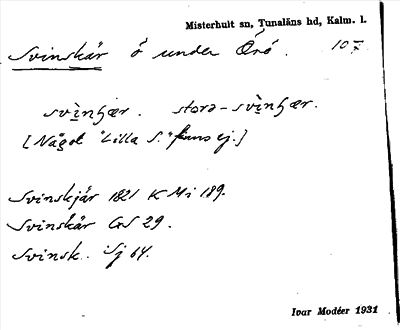 Misterhult sn, Tunaläns hd, Kalm. l.
Svinskär ö under Örö. 107
svìnʃær. stora-svìnʃær.
[Något "Lilla S." finns ej.]
Svinskjär 1821 K Mi 189.
Svinskär GS 29.
Svinsk. Sj 64.
Ivar Modéer 1931